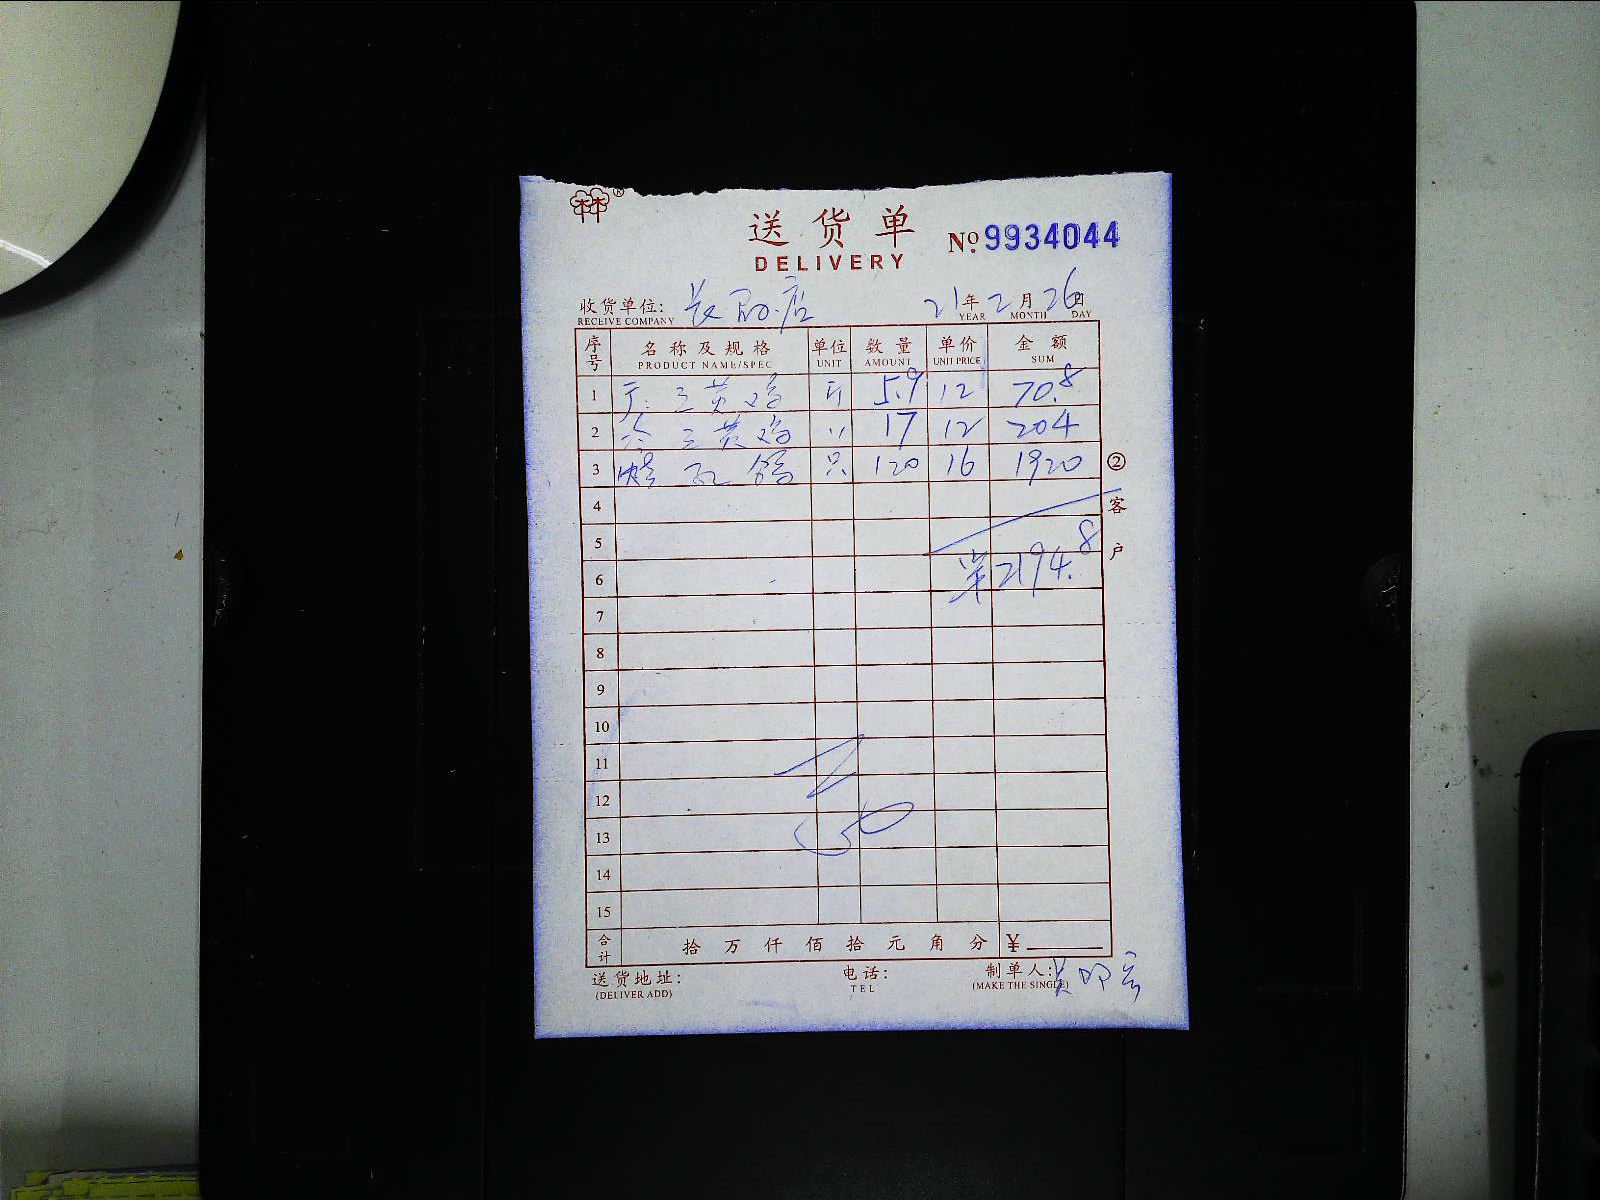 林®
送货单
№ 9934044
DELIVERY
收货单位: 长 店 21年2月26日
RECEIVE COMPANY YEAR MONTH DAY
序号 名称及规格 单位 数量 单价 金额
PRODUCT NAME/SPEC UNIT AMOUNT UNIT PRICE SUM
1 三黄鸡 斤 5.9 12 70.8
2 三黄鸡 〃 17 12 204
3 鸽 只 120 16 1920
4
5
6 2194.8
7
8
9
10
11
12
13
14
15
合计 拾 万 仟 佰 拾 元 角 分 ¥
② 客户
送货地址: 电话: 制单人:
(DELIVER ADD) TEL (MAKE THE SINGLE)